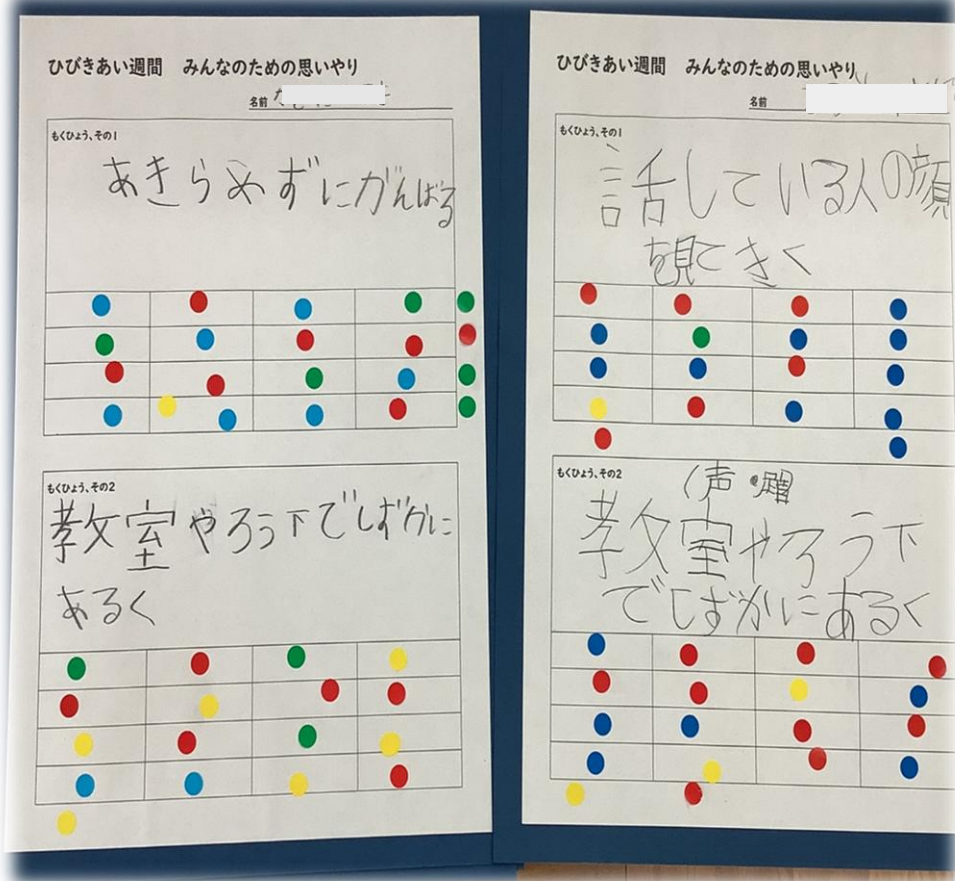 ひびきあい週間　みんなのための思いやり
名前
もくひょう、その1
あきらめずにがんばる
もくひょう、その2
教室やろう下でしずかに
あるく
ひびきあい週間　みんなのための思いやり
名前
もくひょう、その1
話している人の顔
を見てきく
もくひょう、その2
声・
教室やろう下
でしずかにあるく